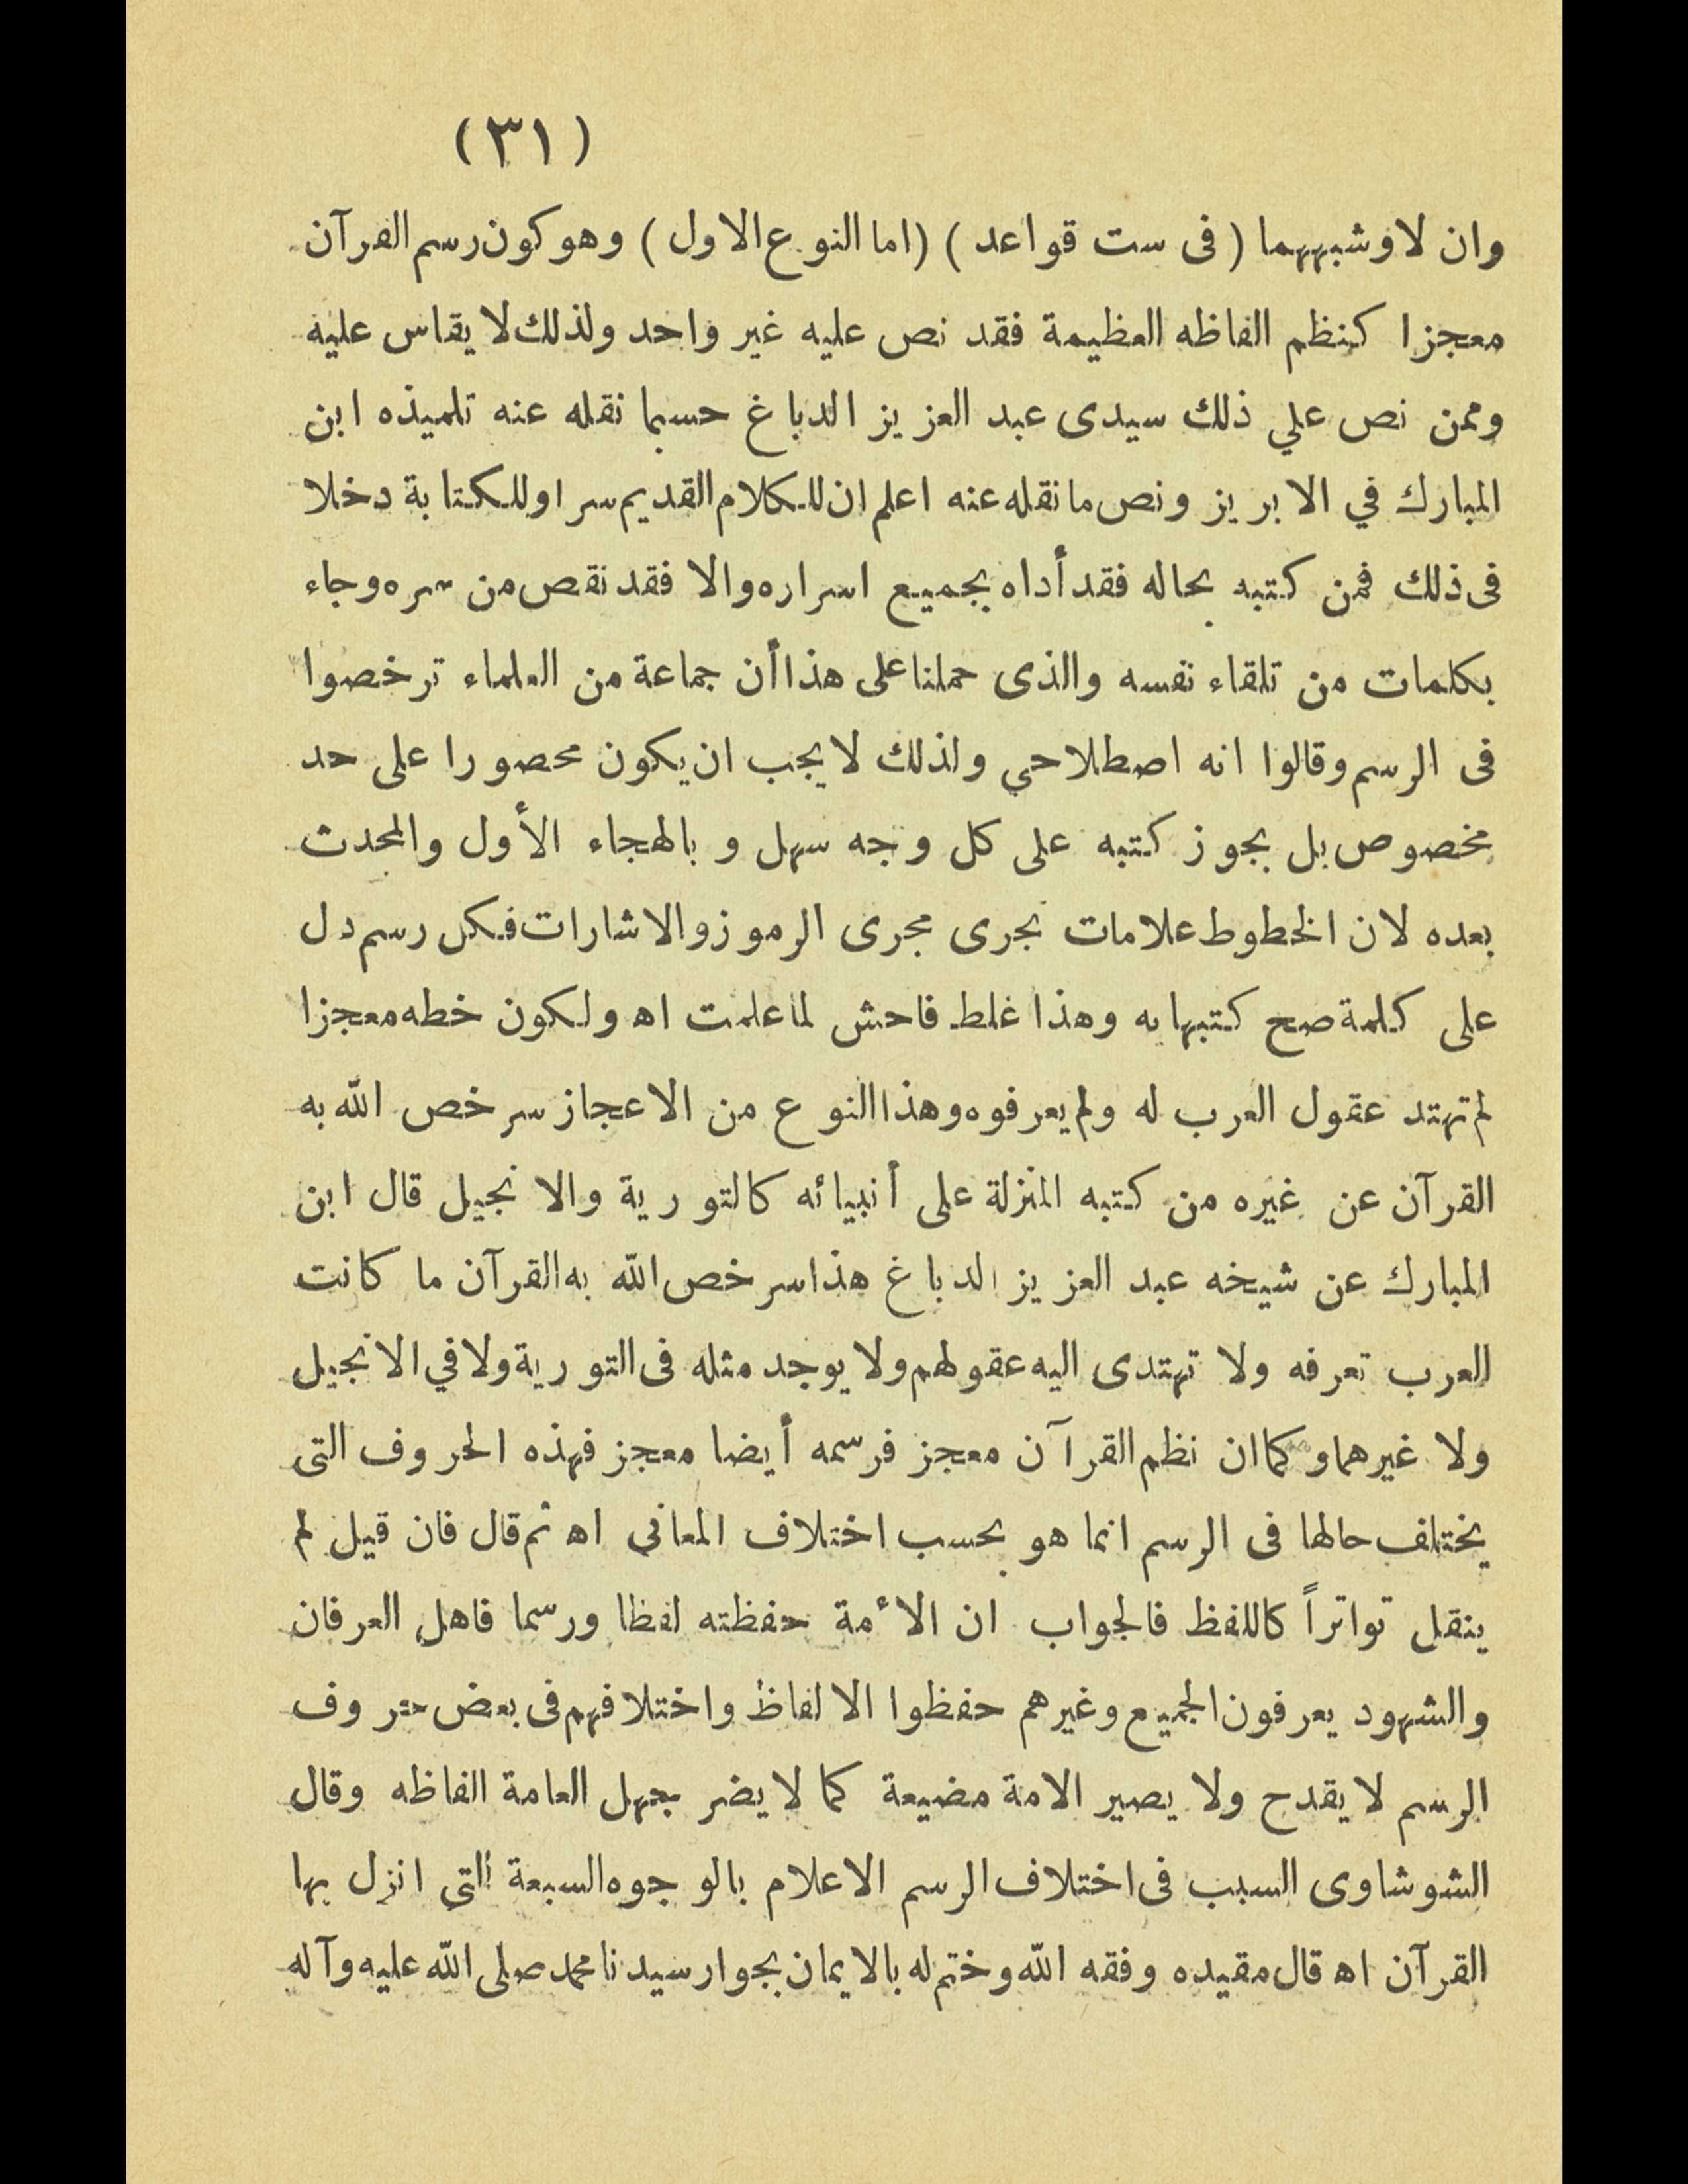 (٣١)
وان لا وشبههما (فى ست قواعد) (اما النوع الاول) وهو كون رسم القرآن
معجزا كنظم الفاظه العظيمة فقد نص عليه غير واحد ولذلك لا يقاس عليه
وممن نص علي ذلك سيدى عبد العزيز الدباغ حسبما نقله عنه تلميذه ابن
المبارك في الابريز ونص ما نقله عنه اعلم ان للكلام القديم سرا وللكتابة دخلا
فى ذلك فمن كتبه بحاله فقد أداه بجميع اسراره والا فقد نقص من سره وجاء
بكلمات من تلقاء نفسه والذى حملنا على هذا أن جماعة من العلماء ترخصوا
فى الرسم وقالوا انه اصطلاحي ولذلك لا يجب ان يكون محصورا على حد
مخصوص بل يجوز كتبه على كل وجه سهل و بالهجاء الأول والمحدث
بعده لان الخطوط علامات تجرى مجرى الرموز والاشارات فكل رسم دل
على كلمة صح كتبها به وهذا غلط فاحش لما علمت اه ولكون خطه معجزا
لم تهتد عقول العرب له ولم يعرفوه وهذا النوع من الاعجاز سر خص الله به
القرآن عن غيره من كتبه المنزلة على أنبيائه كالتورية والانجيل قال ابن
المبارك عن شيخه عبد العزيز الدباغ هذا سر خص الله به القرآن ما كانت
العرب تعرفه ولا تهتدى اليه عقولهم ولا يوجد مثله فى التورية ولا في الانجيل
ولا غيرهما وكما ان نظم القرآن معجز فرسمه أيضا معجز فهذه الحروف التى
يختلف حالها فى الرسم انما هو بحسب اختلاف المعانى اه ثم قال فان قيل لم
ينقل تواتراً كاللفظ فالجواب ان الأمة حفظته لفظا ورسما فاهل العرفان
والشهود يعرفون الجميع وغيرهم حفظوا الالفاظ واختلافهم فى بعض حروف
الرسم لا يقدح ولا يصير الامة مضيعة كما لا يضر جهل العامة الفاظه وقال
الشوشاوى السبب فى اختلاف الرسم الاعلام بالوجوه السبعة التى انزل بها
القرآن اه قال مقيده وفقه الله وختم له بالايمان بجوار سيدنا محمد صلى الله عليه وآله